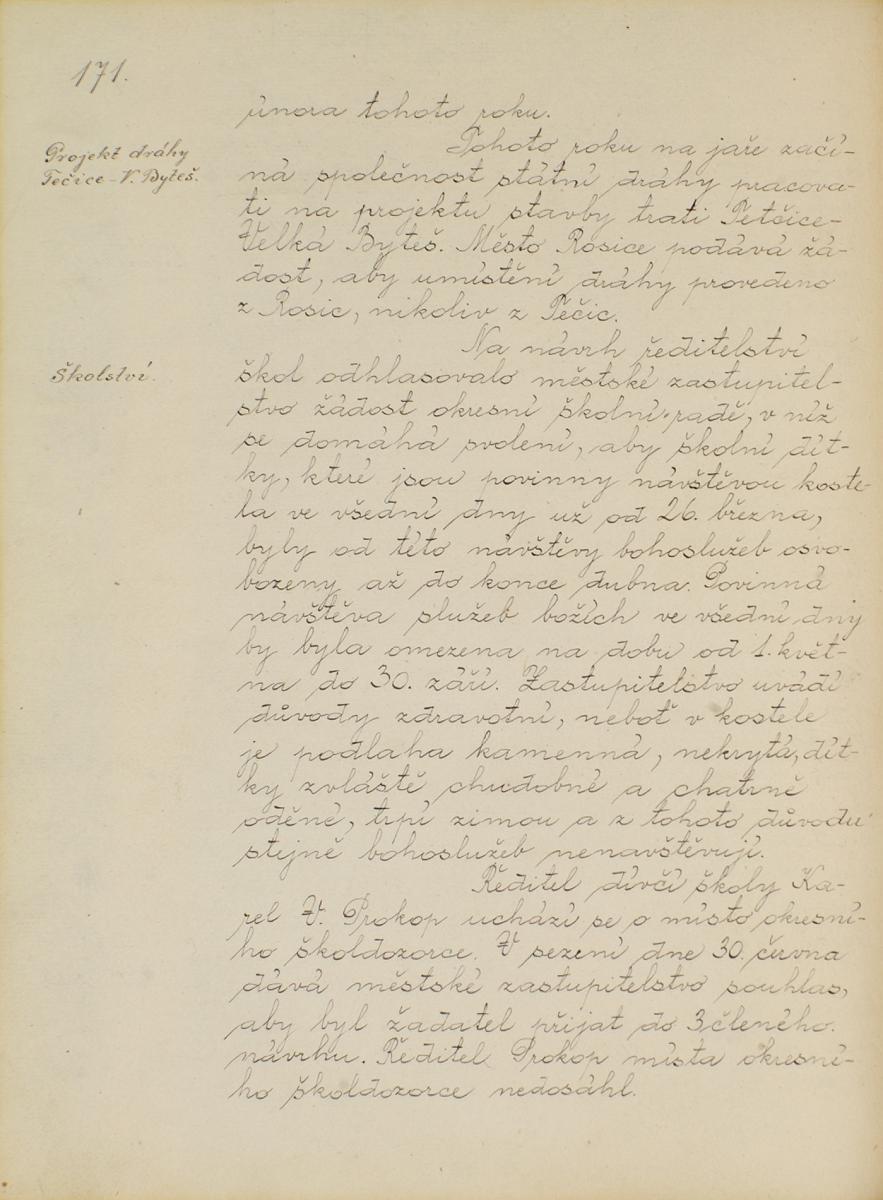 171.
února tohoto roku.
Projekt dráhy
Tečice - V. Byteš.
Tohoto roku na jaře začí-
ná společnost státní dráhy pracova-
ti na projektu stavby trati Tetčice-
Velká Byteš. Město Rosice podává žá-
dost, aby umístění dráhy provedeno
z Rosic, nikoliv z Tečic.
Školství.
Na návrh ředitelství
škol odhlasovalo městské zastupitel-
stvo žádost okresní školní radě, v níž
se domáhá svolení, aby školní dít-
ky, které jsou povinny návštěvou koste-
la ve všední dny už od 26. března,
byly od této návštěvy bohoslužeb osvo-
bozeny až do konce dubna. Povinná
návštěva služeb božích ve všední dny
by byla omezena na dobu od 1. květ-
na do 30. září. Zastupitelstvo uvádí
důvody zdravotní, neboť v kostele
je podlaha kamenná, nekrytá, dít-
ky zvláště chudobné a chatrně
oděné, trpí zimou a z tohoto důvodu
stejně bohoslužeb nenavštěvují.
Ředitel dívčí školy Ka-
rel V. Prokop uchází se o místo okresní-
ho školdozorce. V sezení dne 30. června
dává městské zastupitelstvo souhlas,
aby byl žadatel přijat do 3členého
návrhu. Ředitel Prokop místa okresní-
ho školdozorce nedosáhl.